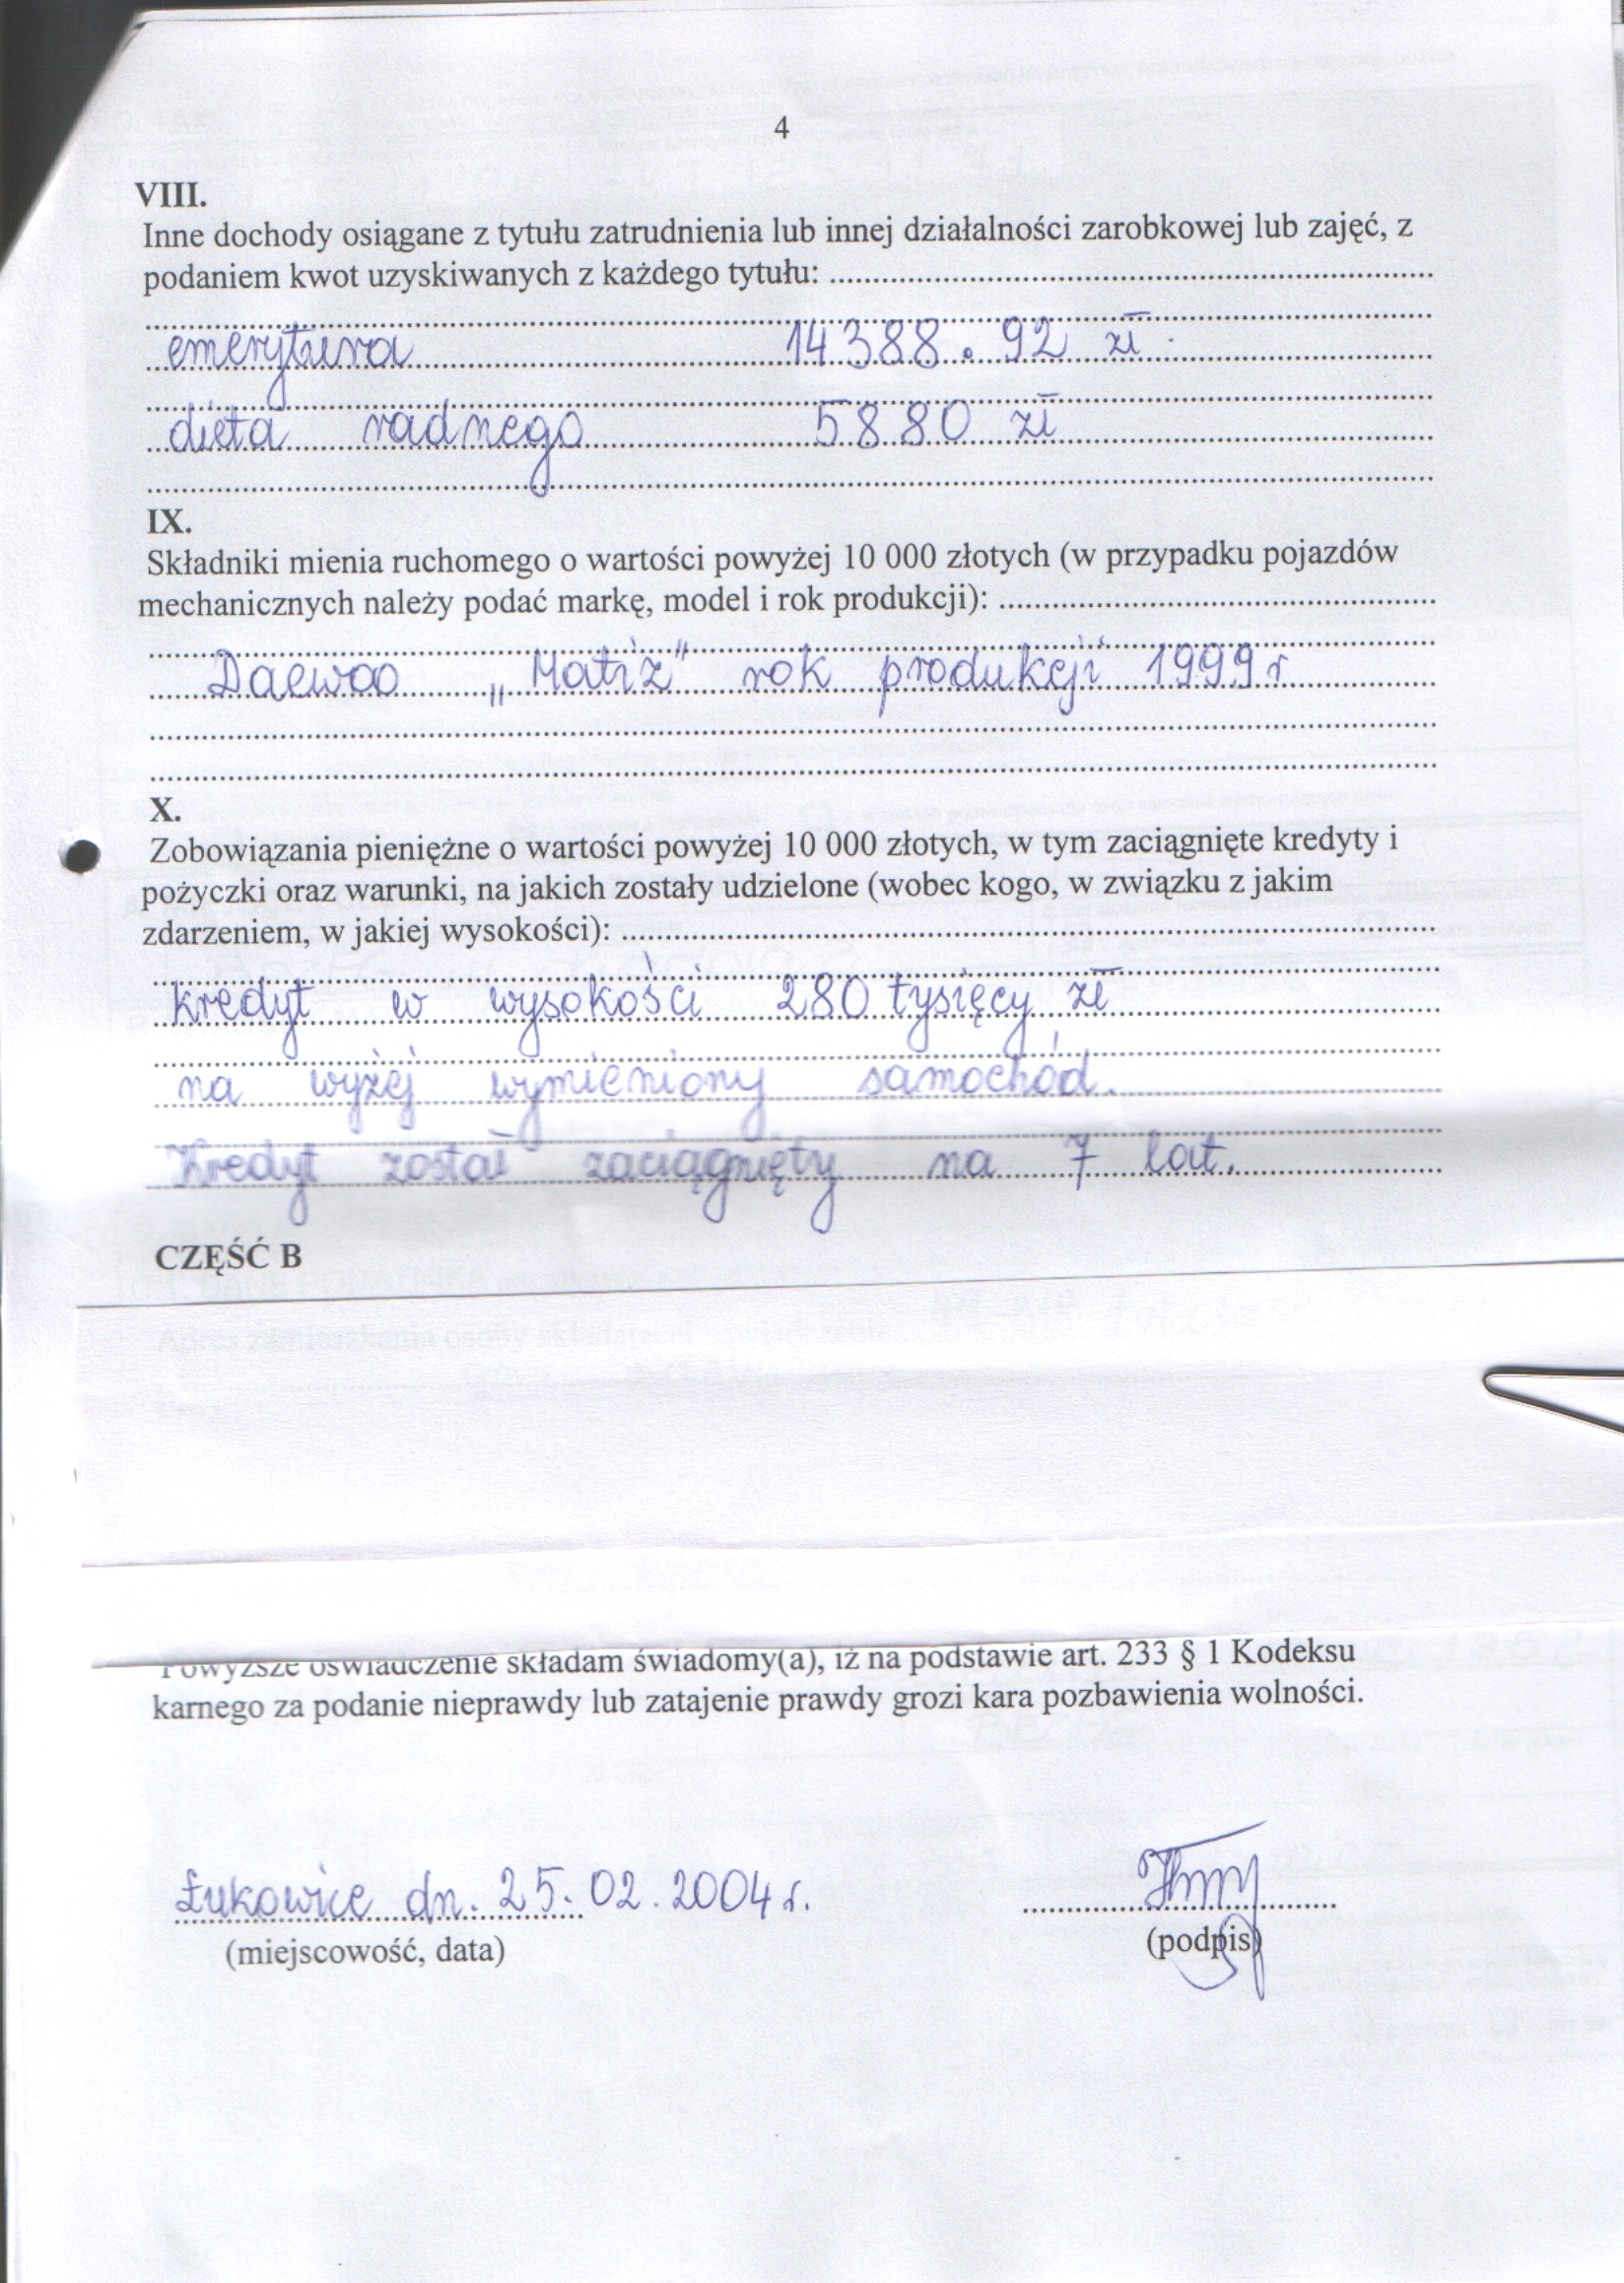 4
VIII.
Inne dochody osiągane z tytułu zatrudnienia lub innej działalności zarobkowej lub zajęć, z
podaniem kwot uzyskiwanych z każdego tytułu:
emerytura 14388.92 zł.
dieta radnego 5880 zł
IX.
Składniki mienia ruchomego o wartości powyżej 10 000 złotych (w przypadku pojazdów
mechanicznych należy podać markę, model i rok produkcji):
Daewoo „Matiz" rok produkcji 1999 r
X.
Zobowiązania pieniężne o wartości powyżej 10 000 złotych, w tym zaciągnięte kredyty i
pożyczki oraz warunki, na jakich zostały udzielone (wobec kogo, w związku z jakim
zdarzeniem, w jakiej wysokości):
kredyt w wysokości 280 tysięcy zł
na wyżej wymieniony samochód.
Kredyt został zaciągnięty na 7 lat.
CZĘŚĆ B
Powyższe oświadczenie składam świadomy(a), iż na podstawie art. 233 § 1 Kodeksu
karnego za podanie nieprawdy lub zatajenie prawdy grozi kara pozbawienia wolności.
Łukowice dn. 25.02.2004 r.
(miejscowość, data) (podpis)